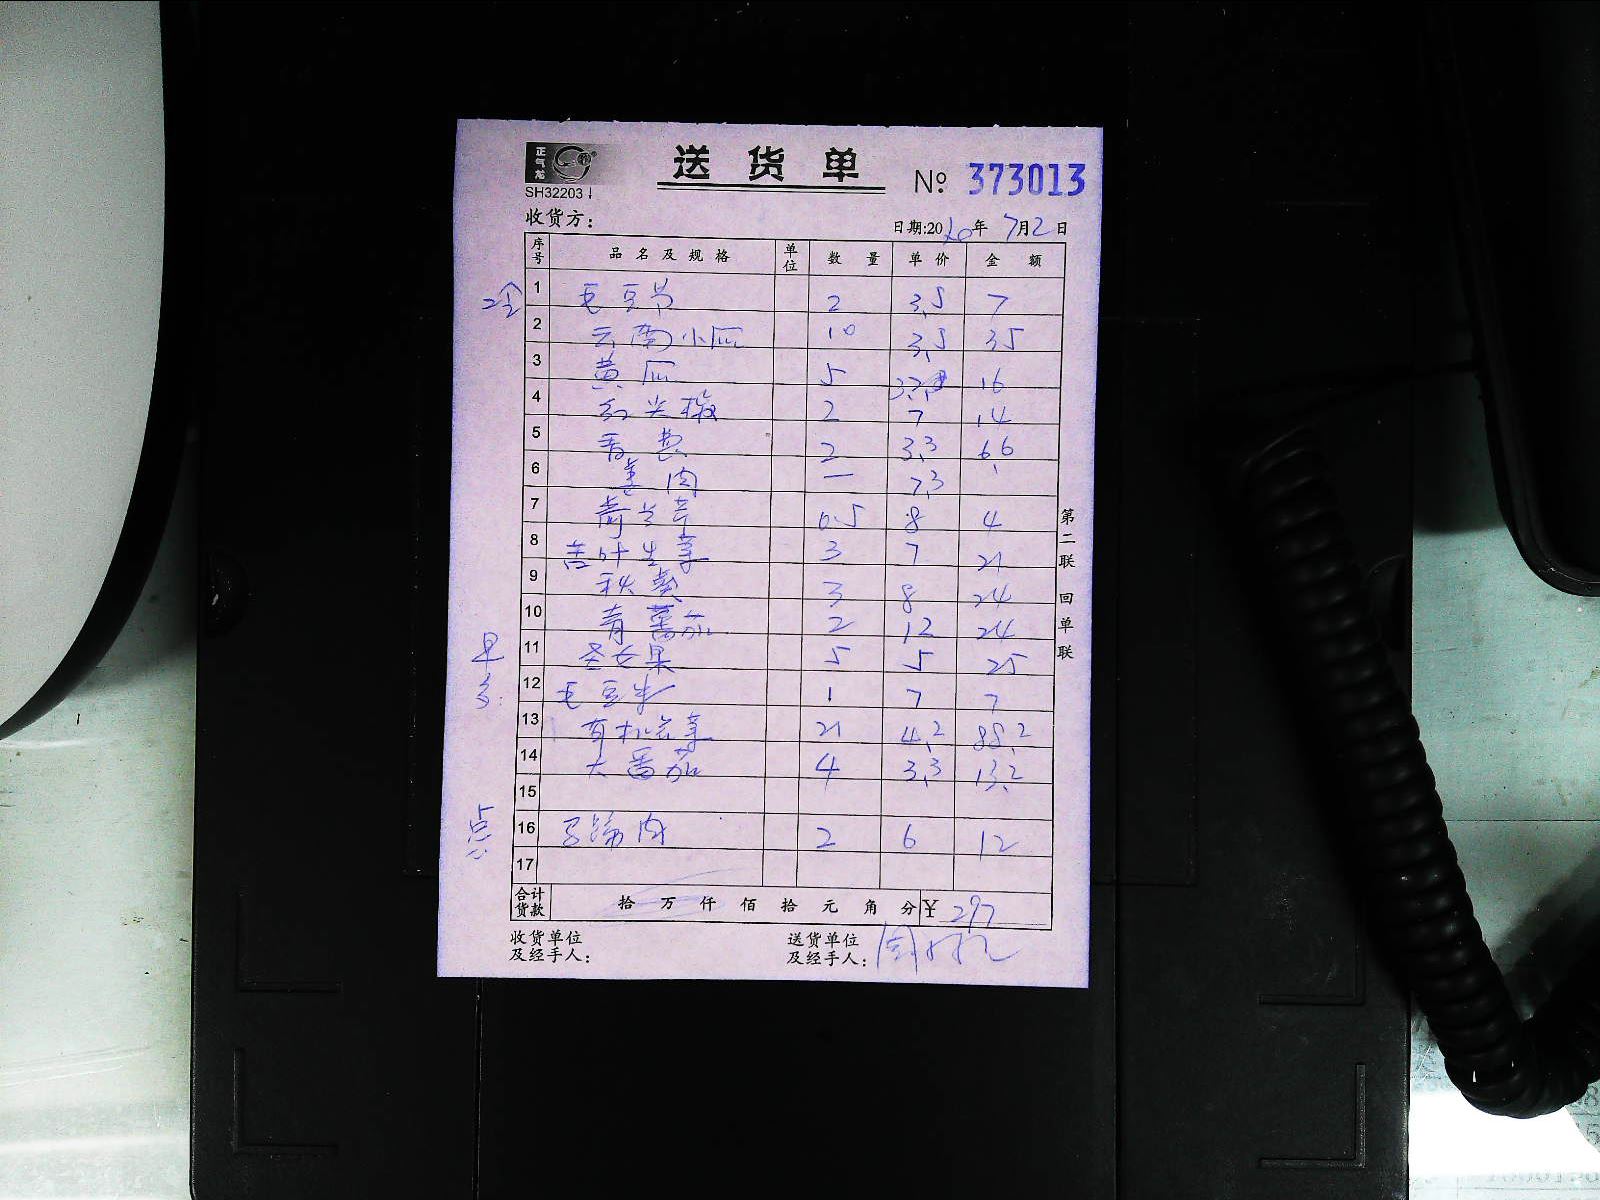 正气龙
送货单 № 373013
SH32203
收货方： 日期:2020年7月2日
序号 品名及规格 单位 数量 单价 金额
1 毛豆节 2 3.5 7
2 云南小瓜 10 3.5 35
3 黄瓜 5 16
4 红尖椒 2 7 14
5 2 3.3 6.6
6 肉 一 7.3
7 0.5 8 4
8 叶生菜 3 7 21
9 秋葵 3 8 24
10 青番茄 2 12 24
早 11 圣女果 5 5 25
12 毛豆米 1 7 7
13 有机花菜 21 4.2 88.2
14 大番茄 4 3.3 13.2
15
点 16 马蹄肉 2 6 12
17
合计货款 拾 万 仟 佰 拾 元 角 分 ¥ 297
收货单位及经手人： 送货单位及经手人：
第二联 回单联